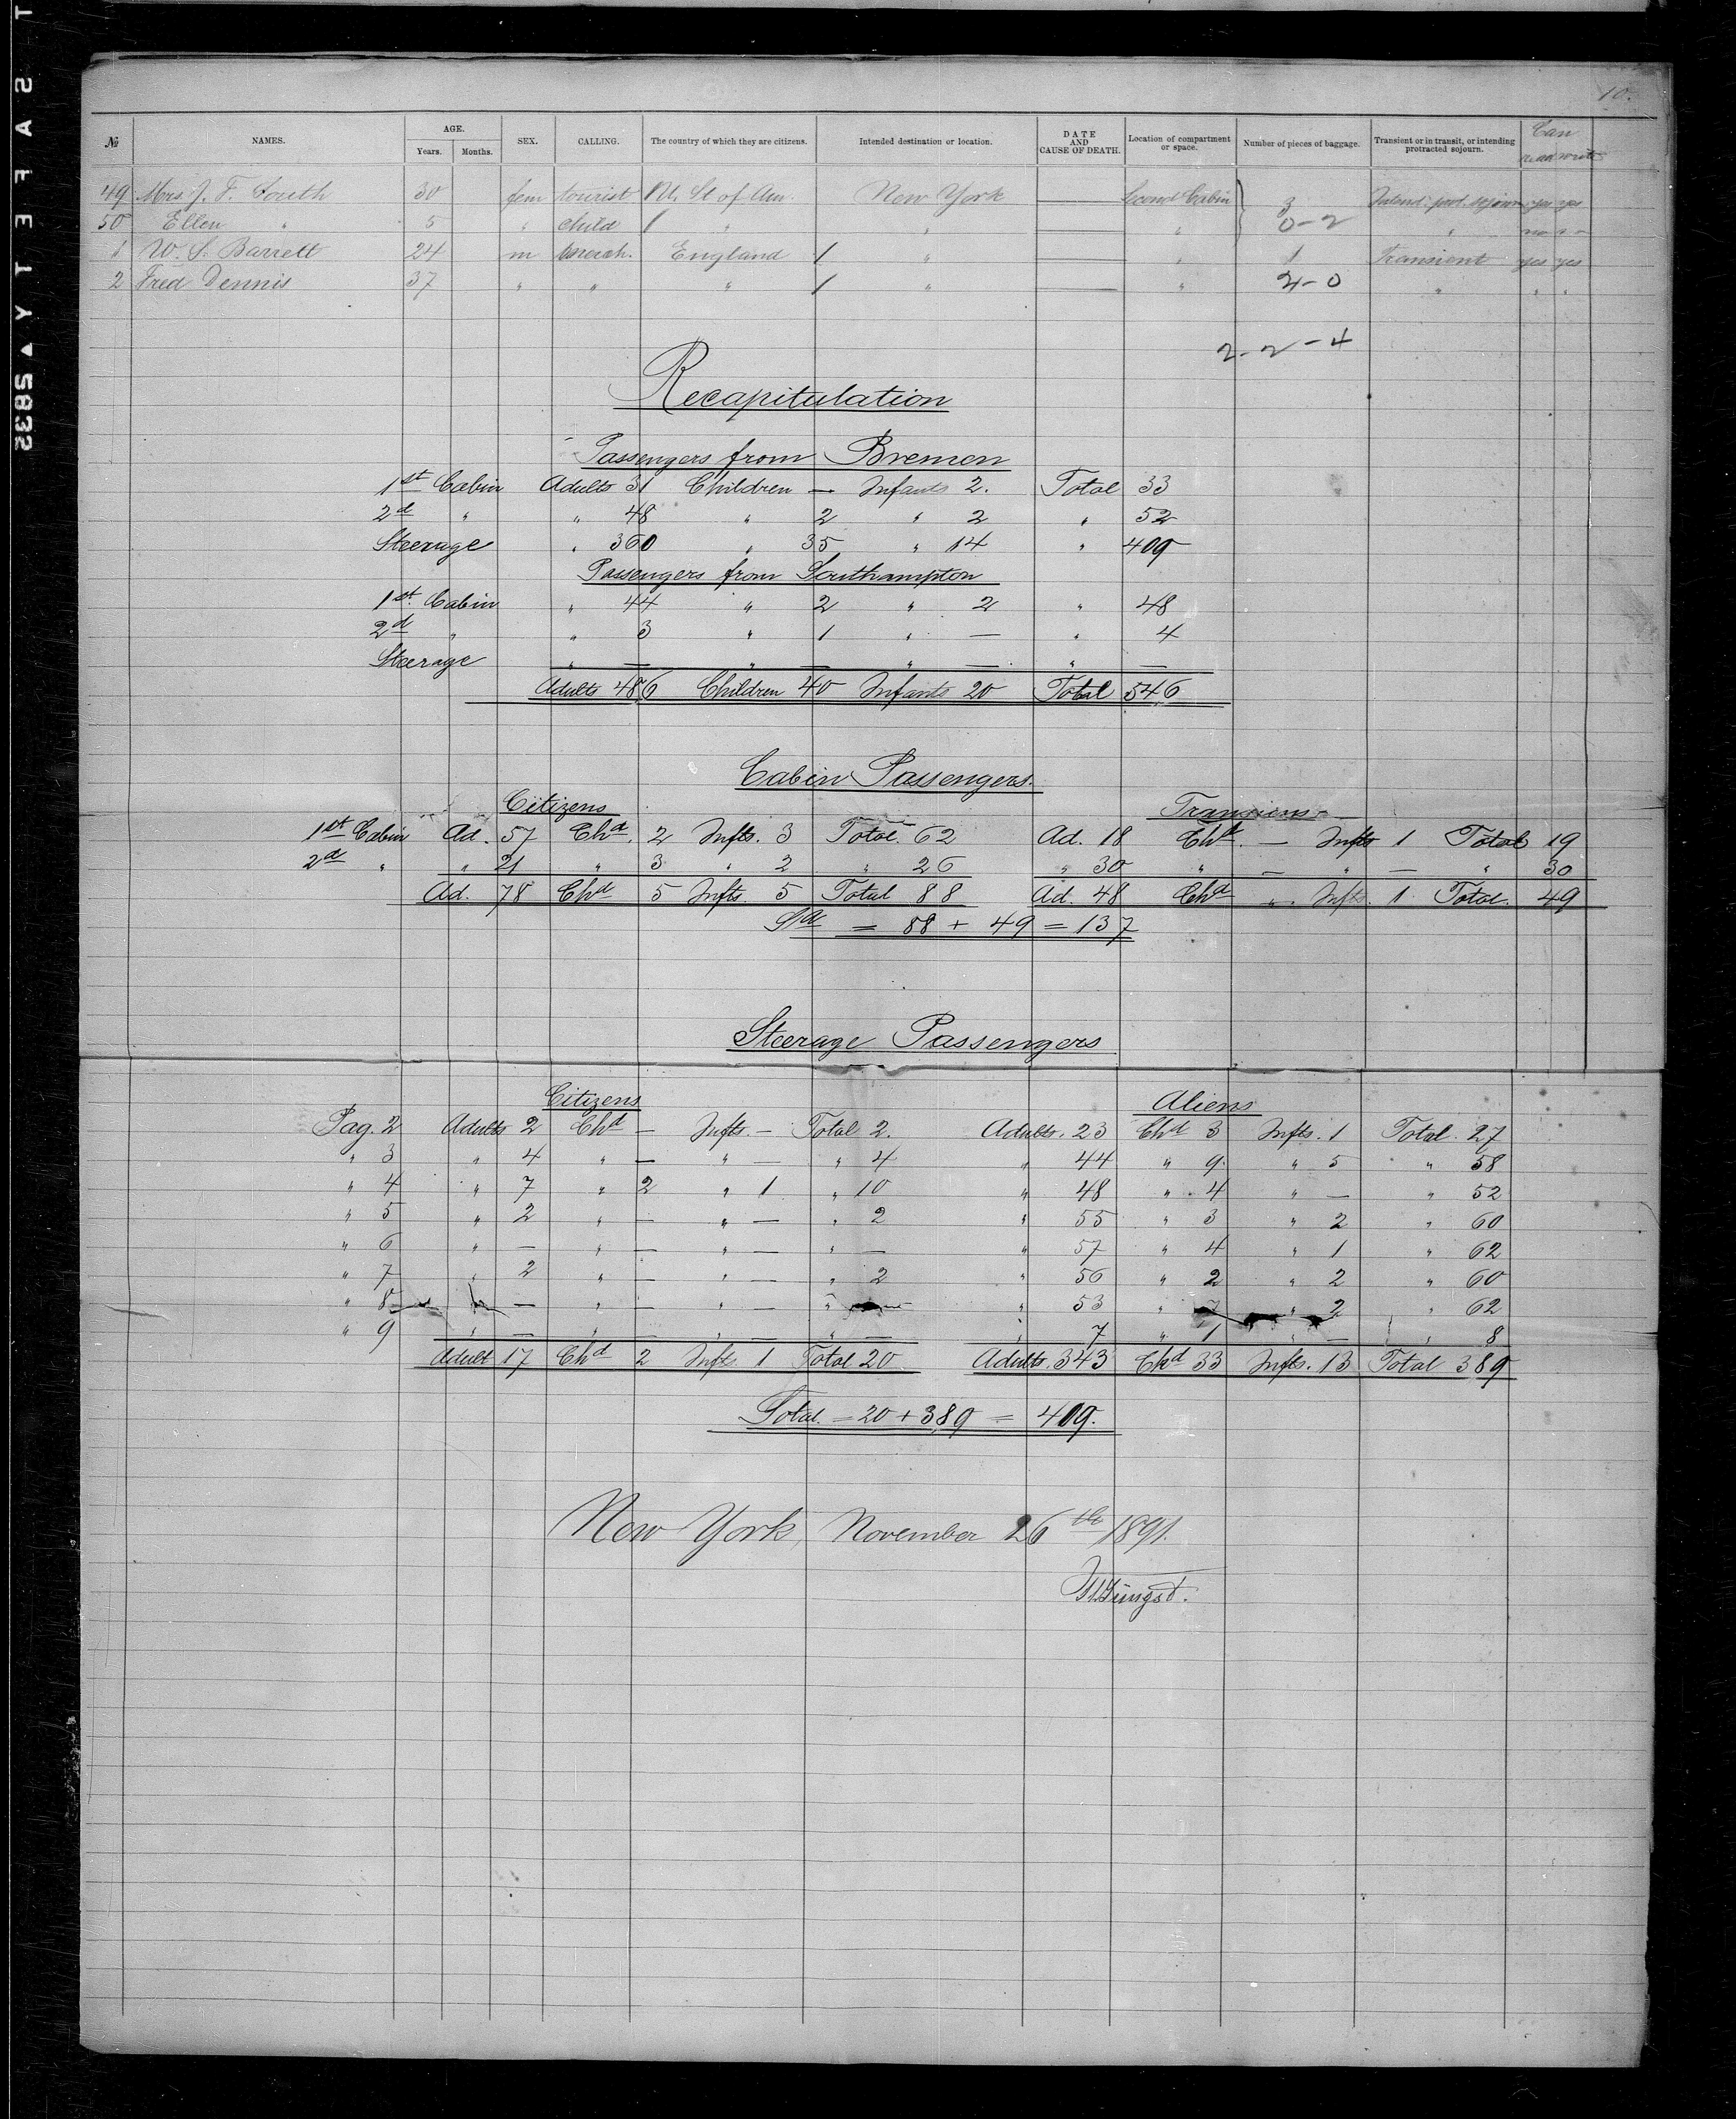 10.
№ NAMES. AGE. Years. Months. SEX. CALLING. The country of which they are citizens. Intended destination or location. DATE AND CAUSE OF DEATH. Location of compartment or space. Number of pieces of baggage. Transient or in transit, or intending protracted sojourn. Can read write
49 Mrs. J. F. South 30 fem tourist U. St of Am. New York — Second Cabin 3 yes yes
50 Ellen " 5 " child 1 " " — " 0-2 " no - -
1 W. S. Barrett 24 m merch. England 1 " — " 1 Transient yes yes
2 Fred Dennis 37 " " " 1 " — " 2-0 " " "
2-2-4
Recapitulation
Passengers from Bremen
1st Cabin Adults 31 Children — Infants 2. Total 33
2d " " 48 " 2 " 2 " 52
Steerage " 360 " 35 " 14 " 409
Passengers from Southampton
1st. Cabin " 44 " 2 " 2 " 48
2d " " 3 " 1 " — " 4
Steerage " — " — " — " —
Adults 486 Children 40 Infants 20 Total 546
Cabin Passengers.
Citizens Transiens
1st Cabin Ad. 57 Chd. 2 Infts. 3 Total. 62 Ad. 18 Chd. — Infts 1 Total 19
2d " " 21 " 3 " 2 " 26 " 30 " — " — " 30
Ad. 78 Chd 5 Infts. 5 Total 88 Ad. 48 Chd " Infts. 1 Total. 49
Sa = 88 + 49 = 137
Steerage Passengers
Citizens Aliens
Pag. 2 Adults 2 Chd — Infts. — Total 2. Adults. 23 Chd 3 Infts. 1 Total. 27
" 3 " 4 " — " — " 4 " 44 " 9 " 5 " 58
" 4 " 7 " 2 " 1 " 10 " 48 " 4 " — " 52
" 5 " 2 " — " — " 2 " 55 " 3 " 2 " 60
" 6 " — " — " — " — " 57 " 4 " 1 " 62
" 7 " 2 " — " — " 2 " 56 " 2 " 2 " 60
" 8 " — " — " — " — " 53 " 7 " 2 " 62
" 9 " — " — " — " — " 7 " 1 " — " 8
Adult 17 Chd 2 Infts 1 Total 20 Adults. 343 Chd 33 Infts. 13 Total 389
Total. = 20 + 389 = 409.
New York, November 26th 1891.
SAFETY ▲ 5832